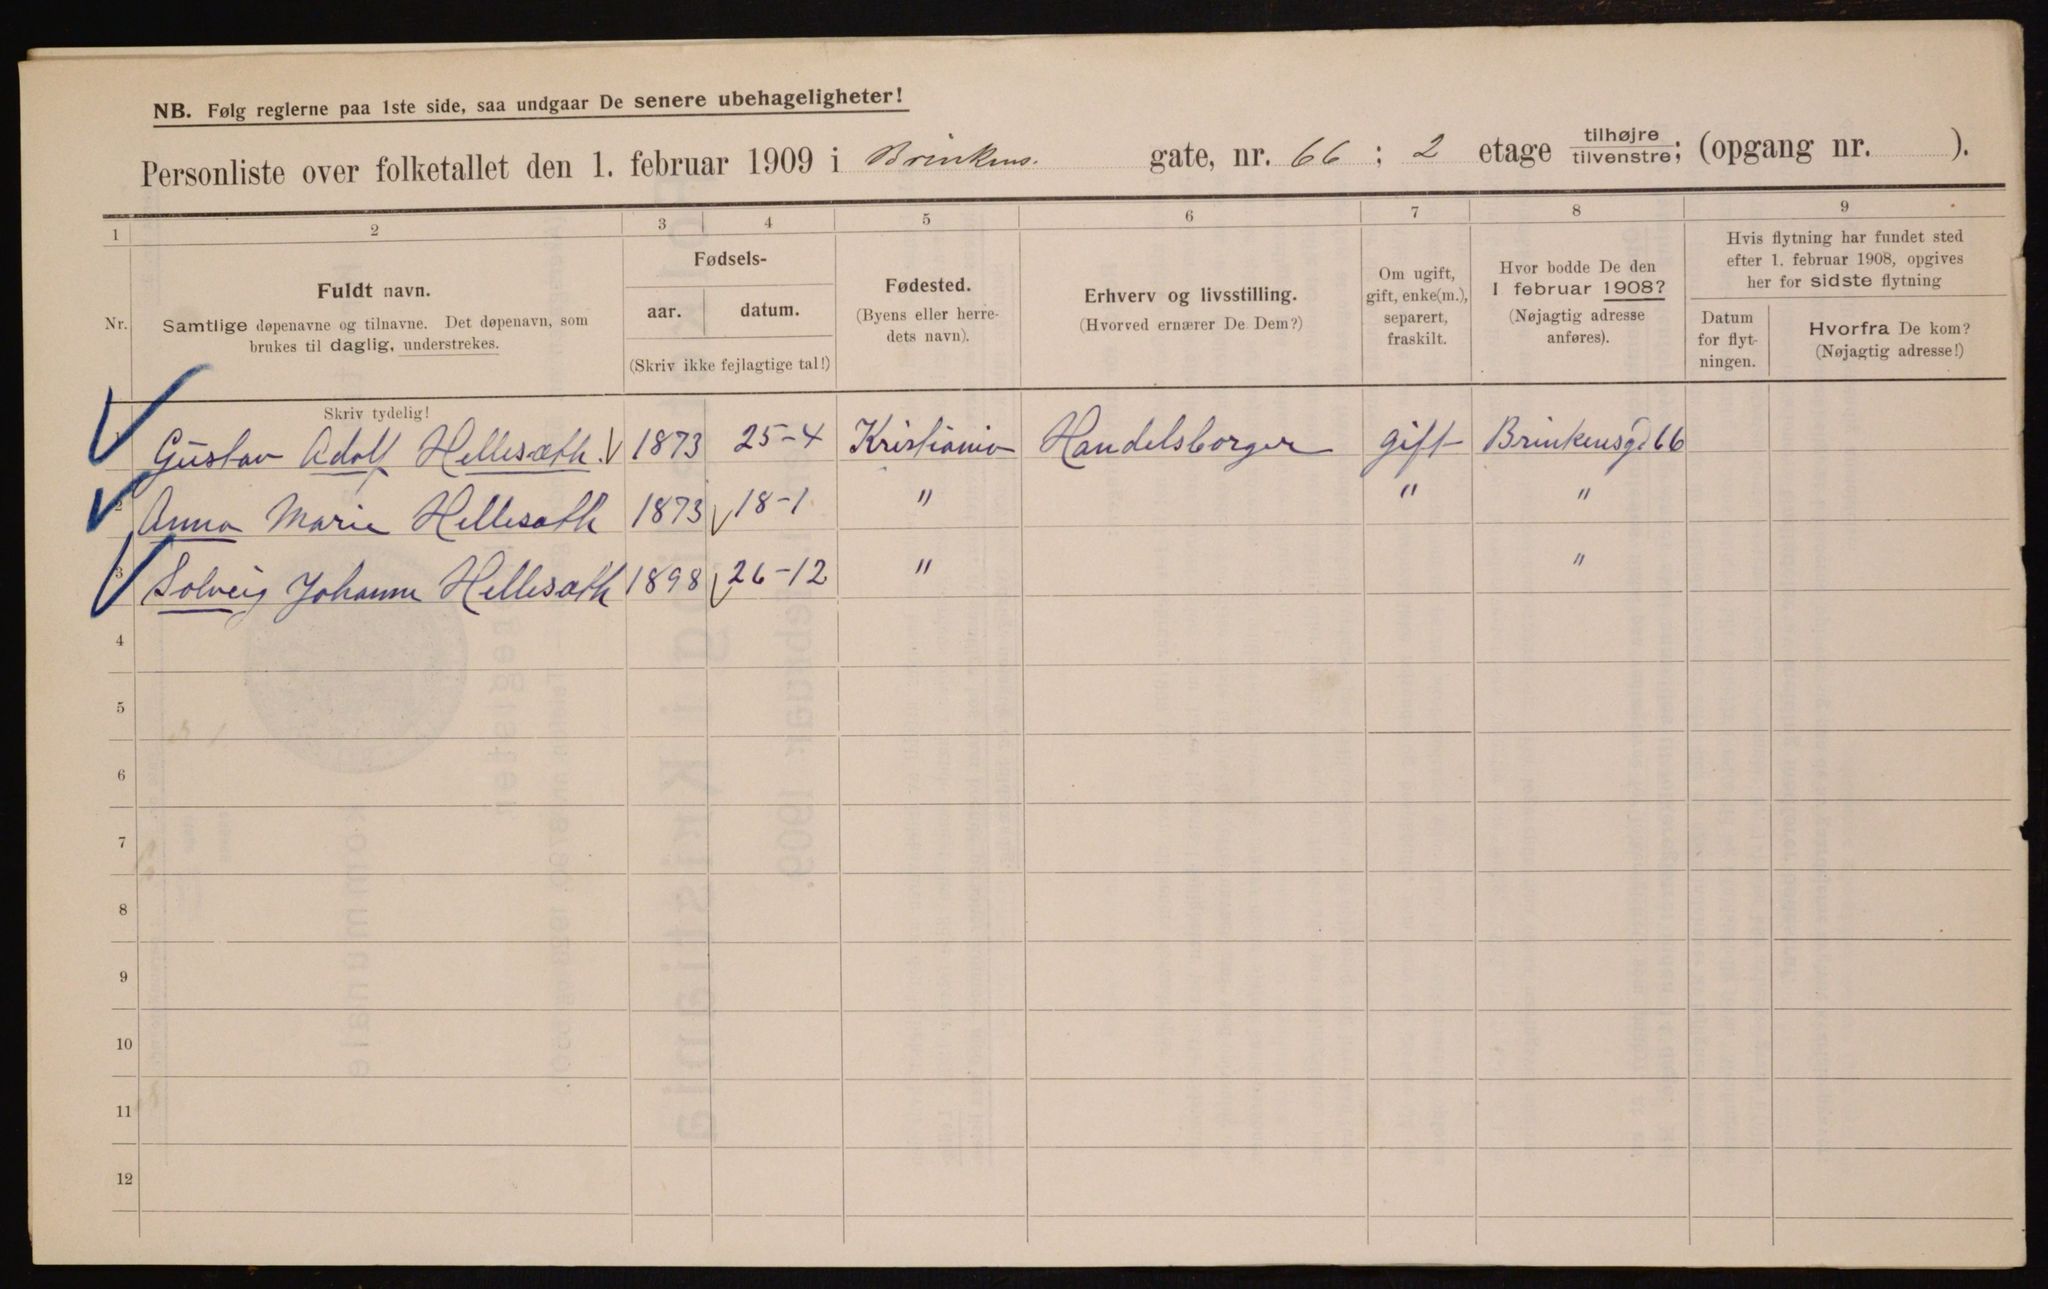 NB. Følg reglerne paa 1ste side, saa undgaar De senere ubehageligheter!
Personliste over folketallet den 1. februar 1909 i Brinkens. gate, nr. 66; 2 etage tilhøjre/tilvenstre; (opgang nr. ).
1 2 3 4 5 6 7 8 9
Nr.
Fuldt navn.
Samtlige døpenavne og tilnavne. Det døpenavn, som
brukes til daglig, understrekes.
Fødsels-
aar. datum.
(Skriv ikke fejlagtige tal!)
Fødested.
(Byens eller herre-
dets navn).
Erhverv og livsstilling.
(Hvorved ernærer De Dem?)
Om ugift,
gift, enke(m.),
separert,
fraskilt.
Hvor bodde De den
1 februar 1908?
(Nøjagtig adresse
anføres).
Hvis flytning har fundet sted
efter 1. februar 1908, opgives
her for sidste flytning
Datum
for flyt-
ningen.
Hvorfra De kom?
(Nøjagtig adresse!)
Skriv tydelig!
Gustav Adolf Hellesæth. 1873 25-4 Kristiania Handelsborger gift Brinkensg. 66
2 Anna Marie Hellesæth 1873 18-1 " " "
3 Solveig Johanne Hellesæth 1898 26-12 " "
4
5
6
7
8
9
10
11
12